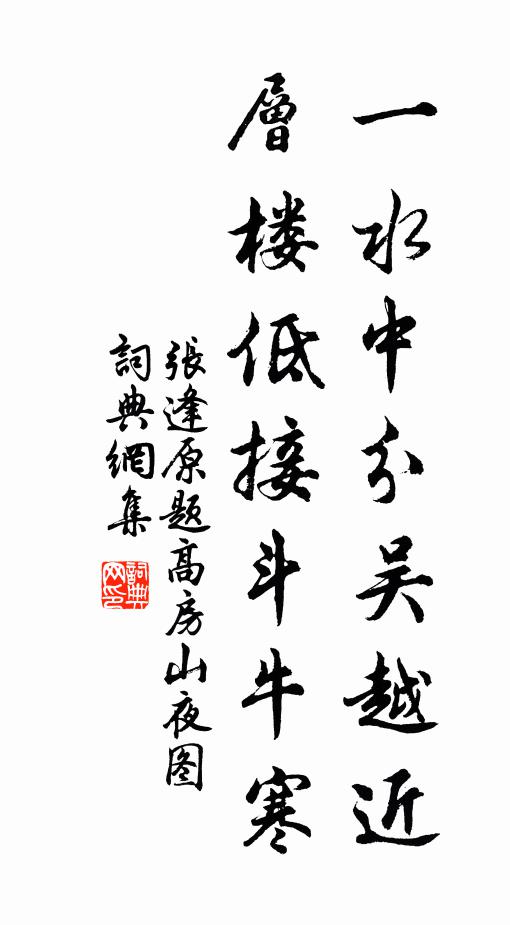 一水中分吴越近
層楼低接斗牛寒
張逢原题高房山夜图
詞典網集
詞典网印